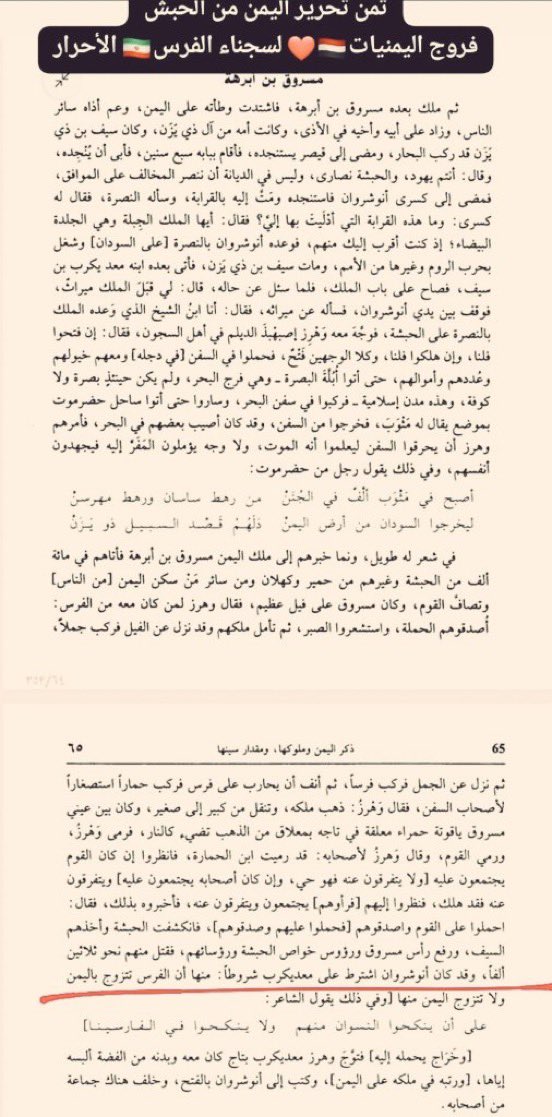 ثمن تحرير اليمن من الحبش
فروج اليمنيات🇾🇪❤️ لسجناء الفرس🇮🇷 الأحرار
مسروق بن أبرهة
ثم ملك بعده مسروق بن أبرهة، فاشتدت وطأته على اليمن، وعم أذاه سائر
الناس، وزاد على أبيه وأخيه في الأذى، وكانت أمه من آل ذي يَزَن، وكان سيف بن ذي
يَزَن قد ركب البحار، ومضى إلى قيصر يستنجده، فأقام ببابه سبع سنين، فأبى أن يُنْجِده،
وقال: أنتم يهود، والحبشة نصارى، وليس في الديانة أن ننصر المخالف على الموافق،
فمضى إلى كسرى أنوشروان فاستنجده ومَتَّ إليه بالقرابة، وسأله النصرة، فقال له
كسرى: وما هذه القرابة التي أدْلَيْتَ بها إليَّ؟ فقال: أيها الملك الجِبلة وهي الجلدة
البيضاء؛ إذ كنت أقرب إليك منهم، فوعده أنوشروان بالنصرة [على السودان] وشغل
بحرب الروم وغيرها من الأمم، ومات سيف بن ذي يَزَن، فأتى بعده ابنه معد يكرب بن
سيف، فصاح على باب الملك، فلما سئل عن حاله، قال: لي قِبَلَ الملك ميراث،
فوقف بين يدي أنوشروان، فسأله عن ميراثه، فقال: أنا ابنُ الشيخ الذي وَعده الملك
بالنصرة على الحبشة، فوجَّه معه وَهْرِز إصبهبذ الديلم في أهل السجون، فقال: إن فتحوا
فلنا، وإن هلكوا فلنا، وكلا الوجهين فَتْحٌ، فحملوا في السفن [في دجله] ومعهم خيولهم
وعُددهم وأموالهم، حتى أتوا أُبُلَّة البصرة ـ وهي فرج البحر، ولم يكن حينئذٍ بصرة ولا
كوفة، وهذه مدن إسلامية ـ فركبوا في سفن البحر، وساروا حتى أتوا ساحل حضرموت
بموضع يقال له مَثْوَب، فخرجوا من السفن، وقد كان أصيب بعضهم في البحر، فأمرهم
وهرز أن يحرقوا السفن ليعلموا أنه الموت، ولا وجه يؤملون المَفَرَّ إليه فيجهدون
أنفسهم، وفي ذلك يقول رجل من حضرموت:
أصبح في مَثْوَب ألْفٌ في الجُنَنْ من رهط ساسان ورهط مهرسنْ
ليخرجوا السودان من أرض اليمنْ دَلَهُمْ قَصْدَ السبيل ذو يَزَنْ
في شعر له طويل، ونما خبرهم إلى ملك اليمن مسروق بن أبرهة فأتاهم في مائة
ألف من الحبشة وغيرهم من حمير وكهلان ومن سائر مَنْ سكن اليمن [من الناس]
وتصافَّ القوم، وكان مسروق على فيل عظيم، فقال وهرز لمن كان معه من الفرس:
أُصدقوهم الحملة، واستشعروا الصبر، ثم تأمل ملكهم وقد نزل عن الفيل فركب جملاً،
٣٥٣/٦٤
65 ذكر اليمن وملوكها، ومقدار سينها ٦٥
ثم نزل عن الجمل فركب فرساً، ثم أنف أن يحارب على فرس فركب حماراً استصغاراً
لأصحاب السفن، فقال وَهْرِزُ: ذهب ملكه، وتنقل من كبير إلى صغير، وكان بين عيني
مسروق ياقوتة حمراء معلقة في تاجه بمعلاق من الذهب تضيء كالنار، فرمى وَهْرِزُ،
ورمي القوم، وقال وَهرزُ لأصحابه: قد رميت ابن الحمارة، فانظروا إن كان القوم
يجتمعون عليه [ولا يتفرقون عنه فهو حي، وإن كان أصحابه يجتمعون عليه] ويتفرقون
عنه فقد هلك، فنظروا إليهم [فرأوهم] يجتمعون ويتفرقون عنه، فأخبروه بذلك، فقال:
احملوا على القوم واصدقوهم [فحملوا عليهم وصدقوهم]، فانكشفت الحبشة وأخذهم
السيف، ورفع رأس مسروق ورؤوس خواص الحبشة ورؤسائهم، فقتل منهم نحو ثلاثين
ألفاً، وقد كان أنوشروان اشترط على معديكرب شروطاً: منها أن الفرس تتزوج باليمن
ولا تتزوج اليمن منها [وفي ذلك يقول الشاعر:
على أن ينكحوا النسوان منهم ولا ينكحوا في الفارسينا]
[وخَرَاج يحمله إليه] فتوَّج وهرز معديكرب بتاج كان معه وبدنه من الفضة ألبسه
إياها، [ورتبه في ملكه على اليمن]، وكتب إلى أنوشروان بالفتح، وخلف هناك جماعة
من أصحابه.